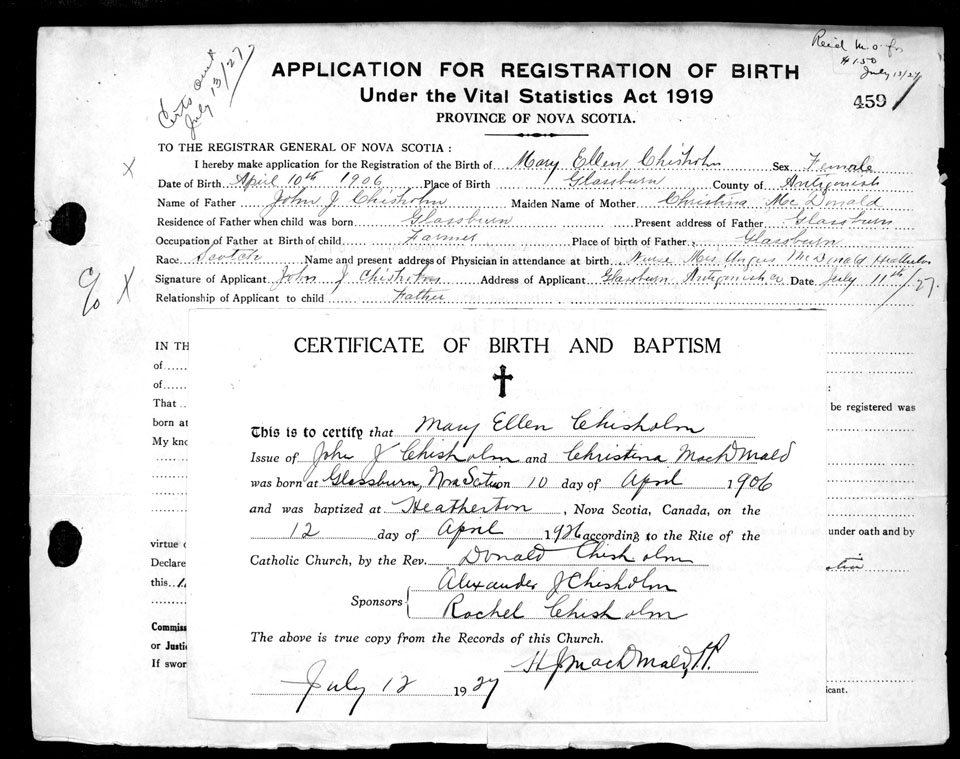 Certs out
July 13/27
Reid m.o. for
$1.50
July 13/27
459
APPLICATION FOR REGISTRATION OF BIRTH
Under the Vital Statistics Act 1919
PROVINCE OF NOVA SCOTIA.
TO THE REGISTRAR GENERAL OF NOVA SCOTIA :
X
I hereby make application for the Registration of the Birth of Mary Ellen Chisholm Sex Female
Date of Birth April 10th 1906 Place of Birth Glassburn County of Antigonish
Name of Father John J. Chisholm Maiden Name of Mother Christina Mc Donald
Residence of Father when child was born Glassburn Present address of Father Glassburn
Occupation of Father at Birth of child Farmer Place of birth of Father Glassburn
Race Scotch Name and present address of Physician in attendance at birth Nurse Mrs Angus McDonald
c/o X
Signature of Applicant John J Chisholm Address of Applicant Glassburn Antigonish Co Date July 11th/27.
Relationship of Applicant to child Father
IN TH
of
of
That
born at
My kno
be registered was
virtue o
under oath and by
Declare
this
Commis
or Justic
If swor
icant.
CERTIFICATE OF BIRTH AND BAPTISM
This is to certify that Mary Ellen Chisholm
Issue of John J Chisholm and Christina MacDonald
was born at Glassburn, Nova Scotia on 10 day of April 1906
and was baptized at Heatherton, Nova Scotia, Canada, on the
12 day of April 1906 according to the Rite of the
Catholic Church, by the Rev. Donald Chisholm
Sponsors { Alexander J Chisholm
Rachel Chisholm
The above is true copy from the Records of this Church.
H J MacDonald, P.P.
July 12 1927